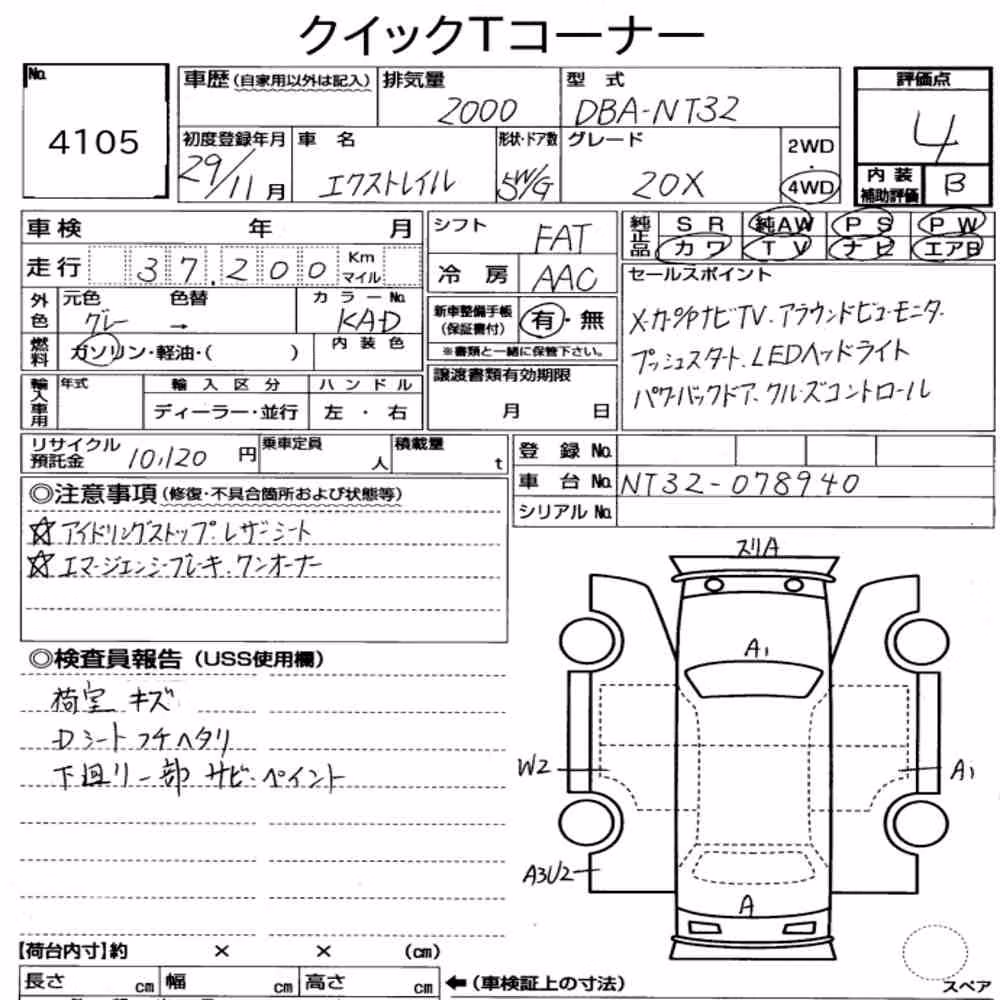 クイックTコーナー
No.
4105
車歴(自家用以外は記入)
排気量 2000
型式 DBA-NT32
初度登録年月 29/11月
車名 エクストレイル
形状・ドア数 5W/G
グレード 20X
2WD
・
4WD
評価点
4
内装補助評価 B
車検 年 月
走行 37,200 Km マイル
外色 元色 グレー 色替 →
カラーNo. KAD
燃料 ガソリン・軽油・( )
内装色
輸入車用 年式 輸入区分 ハンドル
ディーラー・並行 左・右
シフト FAT
冷房 AAC
新車整備手帳(保証書付) 有・無
※書類と一緒に保管下さい。
譲渡書類有効期限
月 日
純正品 SR 純AW PS PW
カワ TV ナビ エアB
セールスポイント
メーカーOPナビTV.アラウンドビューモニター
プッシュスタート.LEDヘッドライト
パワーバックドア.クルーズコントロール
リサイクル預託金 10,120円
乗車定員 人
積載量 t
登録No.
車台No. NT32-078940
シリアルNo.
◎注意事項(修復・不具合箇所および状態等)
☆アイドリングストップ.レザーシート
☆エマージェンシーブレーキ.ワンオーナー
◎検査員報告(USS使用欄)
荷室 キズ
Dシートフチヘタリ
下廻り一部サビ.ペイント
スリA
A1
W2
A1
A3U2
A
【荷台内寸】約 × × (cm)
長さ cm 幅 cm 高さ cm
←(車検証上の寸法)
スペア